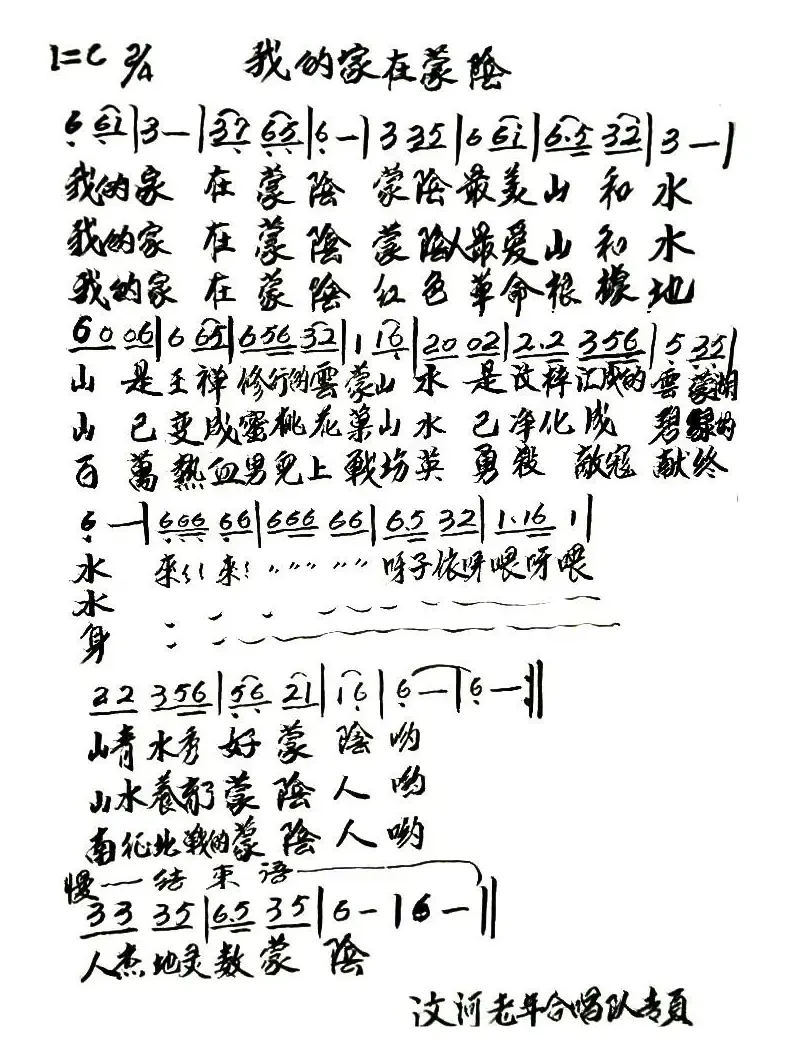 1=C 2/4 我的家在蒙陰
6 6i | 3 — | 37 65 | 6 — | 3 35 | 6 6i | 6·5 32 | 3 — |
我的家 在 蒙 陰 蒙陰最美山 和 水
我的家 在 蒙 陰 蒙陰人最爱山 和 水
我的家 在 蒙 陰 红色 革命根據地
60 06 | 6 65 | 656 32 | 1 16 | 20 02 | 2·2 356 | 5 35 |
山 是王禅修行的雲蒙山 水 是汶梓汇成的 雲蒙湖
山 已变成蜜桃花菓山水 已净化成 碧緑的
百 萬熱血男兒上戰场英 勇殺 敵寇献终
6 — | 666 66 | 666 66 | 6·5 32 | 1·16 1 |
水 来 来 〃〃〃 〃〃 呀子依呀喂呀喂
水
身
22 356 | 56 21 | 16 | 6 — | 6 — :||
山青水秀好蒙 陰哟
山水养育了蒙陰人哟
南征北戰的蒙陰人哟
慢——结束语——
33 35 | 6·5 35 | 6 — | 6 — ||
人杰地灵数蒙 陰
汶河老年合唱队专頁